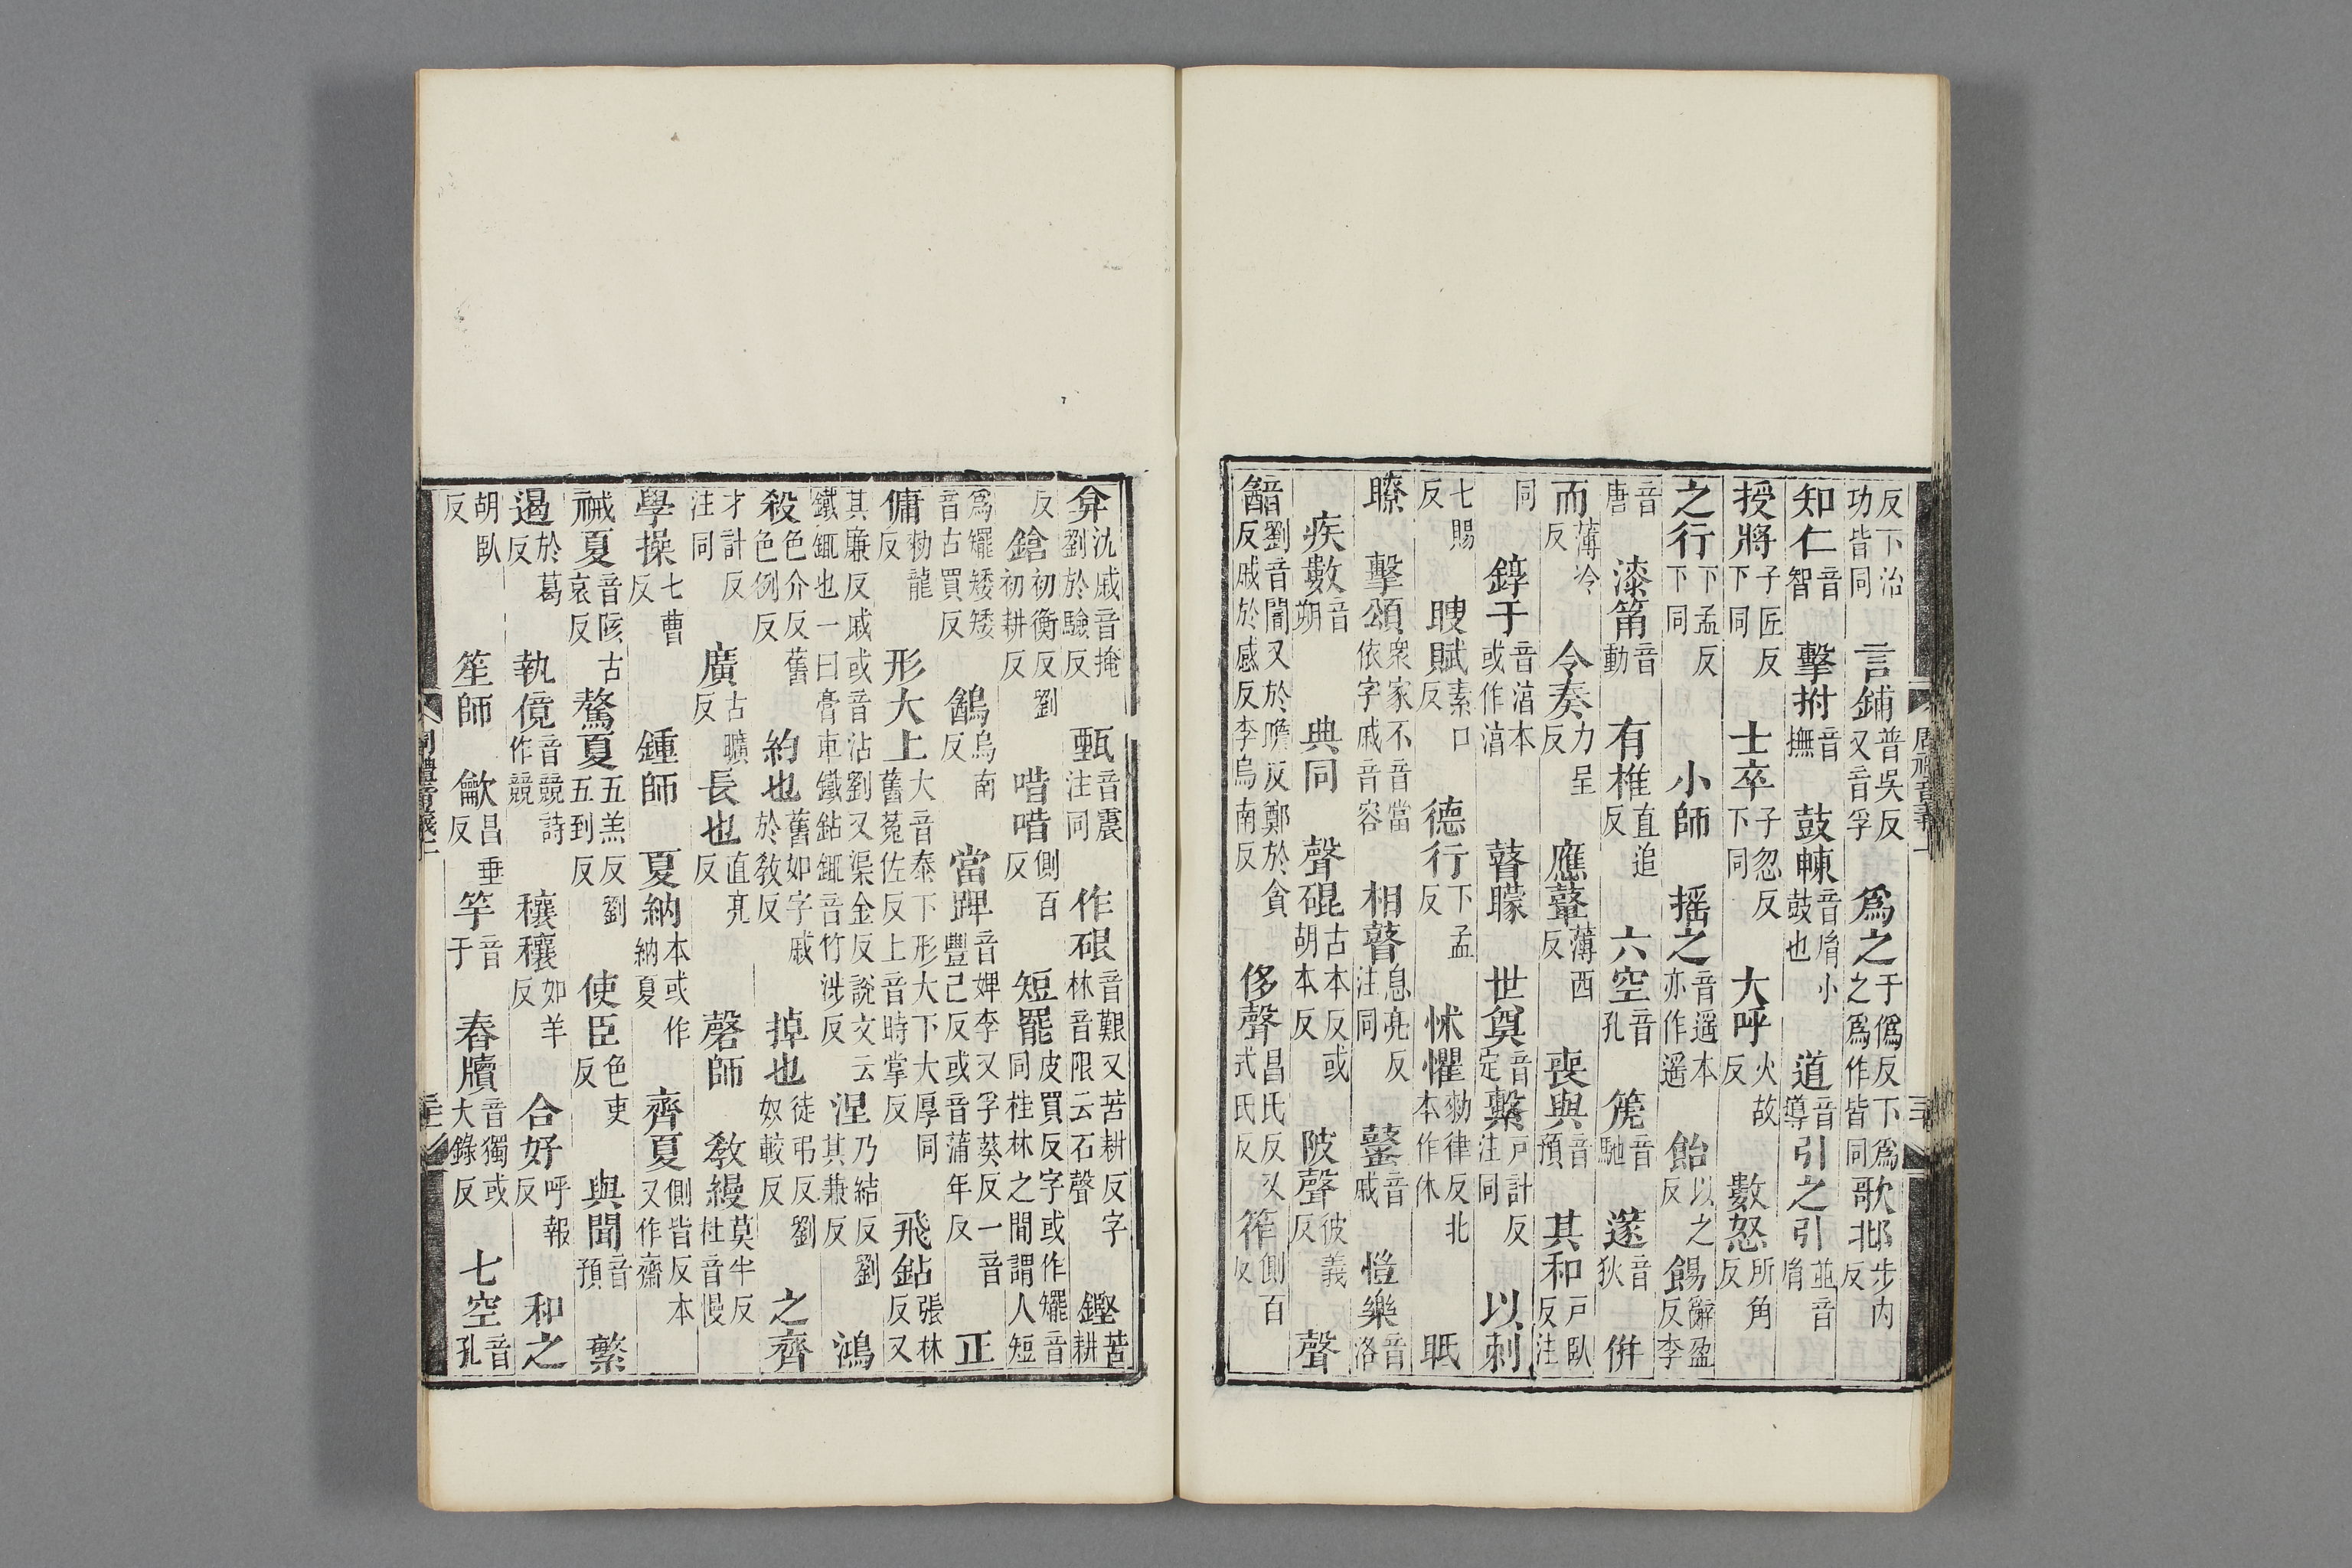 反下治功皆同 言鋪普吳反又音孚 爲之于僞反下爲之爲作皆同 歌邶步内反
知仁音智 擊拊音撫 鼓㯥音胤小鼓也 道音導 引之引並音胤
授將子匠反下同 士卒子忽反下同 大呼火故反 數怒所角反
之行下孟反下同 小師 摇之音遥本亦作遥 飴以之反 餳辭盈反李
音唐 漆筩音動 有椎直追反 六空音孔 篪音馳 篴音狄 併
而薄冷反 令奏力呈反 應鼙薄西反 喪與音預 其和戶臥反注
同 錞于音湻本或作湻 瞽矇 世奠音定 繫戸計反注同 以刺
七賜反 瞍賦素口反 德行下孟反 怵懼勑律反北本作休 眂
瞭 擊頌衆家不音當依字戚音容 相瞽息亮反注同 鼜音戚 愷樂音洛
疾數音朔 典同 聲硍古本反或胡本反 陂聲彼義反 聲
韽劉音闇又於瞻反鄭於貪反戚於感反李烏南反 侈聲昌氏反又式氏反 筰側百反
弇沈戚音掩劉於驗反 甄音震注同 作硍音艱又苦耕反字林音限云石聲 鏗苦耕
反 鎗初衡反劉初耕反 唶唶側百反 短罷皮買反字或作矲音同桂林之間謂人短
爲矲矮矮音古買反 鵮烏南反 當踔音婢李又孚葵反一音豐己反或音蒲年反 正
傭勑龍反 形大上大音泰下形大下大厚同舊菟佐反上音時掌反 飛鉆張林反又
其廉反戚或音沾劉又渠金反說文云鐵鉔也一曰膏車鐵鉆鉔音竹涉反 涅乃結反劉其兼反 鴻
殺色介反舊色例反 約也舊如字戚於敎反 掉也徒弔反劉奴較反 之齊
才計反注同 廣古曠反 長也直亮反 磬師 敎縵莫半反杜音慢
學操七曹反 鍾師 夏納本或作納夏 齊夏側皆反本又作齋
祴夏音陔古哀反 驁夏五羔反劉五到反 使臣色吏反 與聞音預 繁
遏於葛反 執傹音競詩作競 穰穰如羊反 合好呼報反 和之
胡臥反 笙師 龡昌垂反 竽音于 舂牘音獨或大錄反 七空音孔